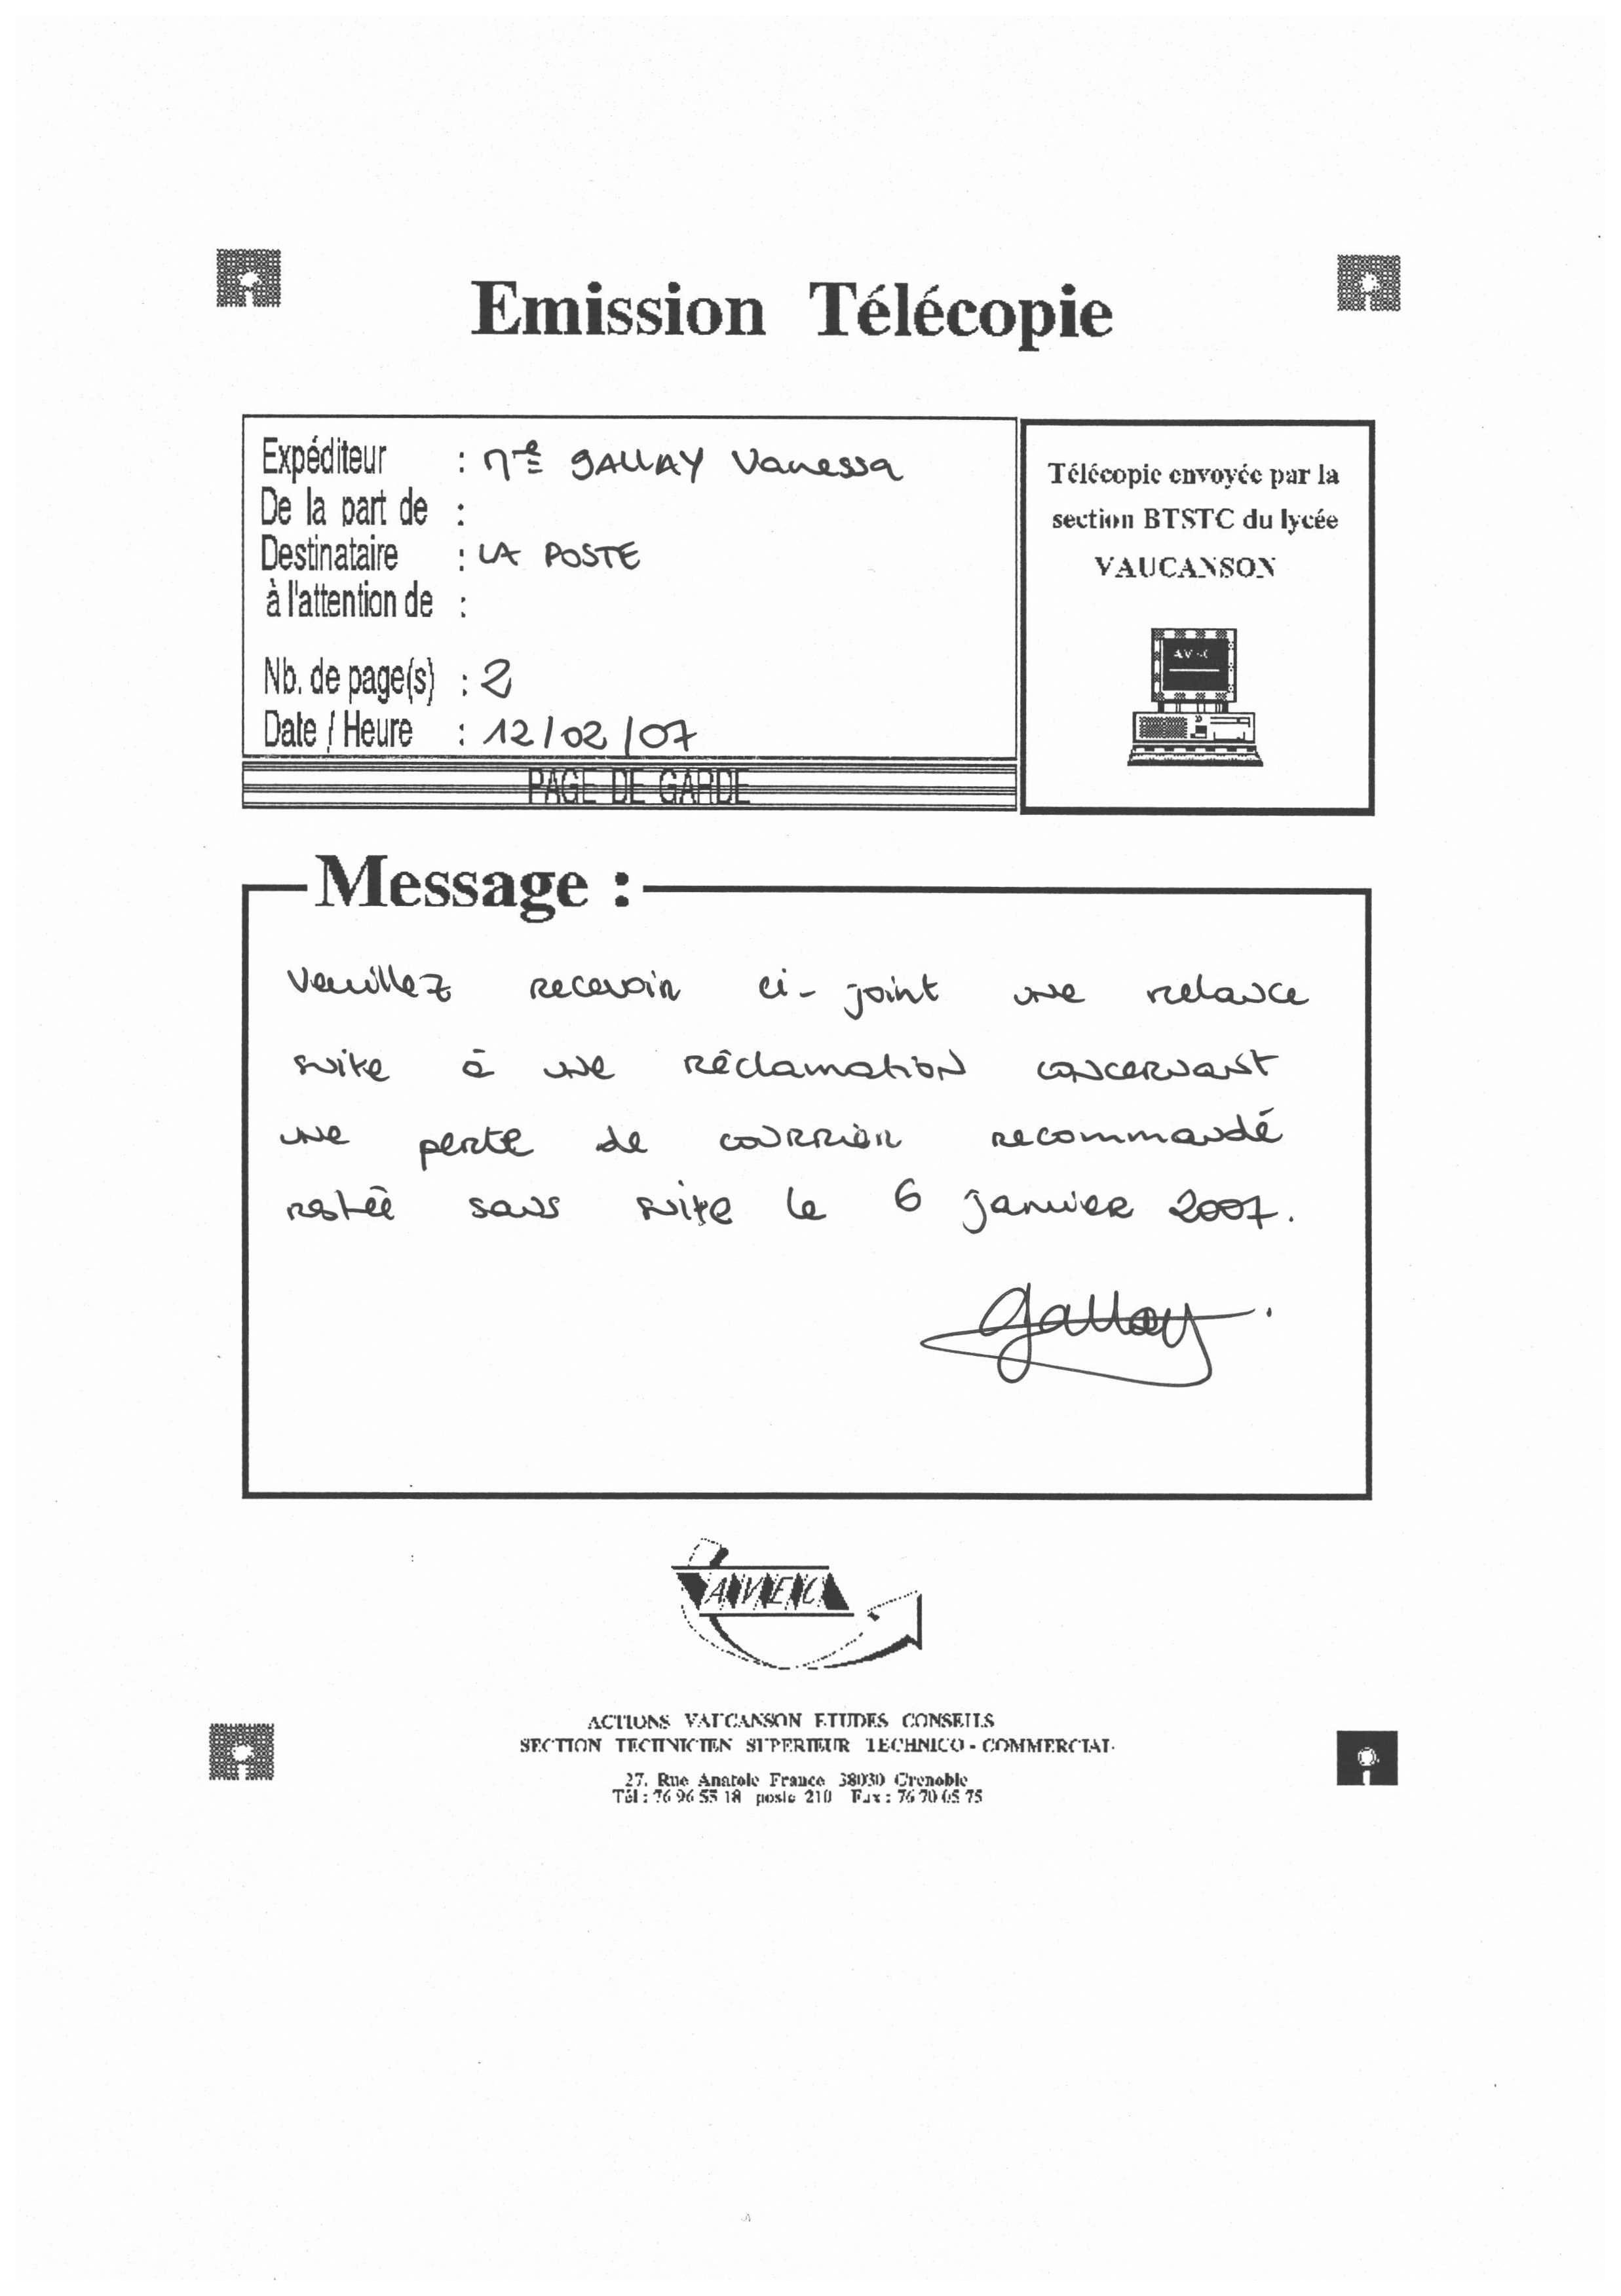 Emission Télécopie
Expéditeur : Mme GALLAY Vanessa
De la part de :
Destinataire : LA POSTE
à l'attention de :
Nb. de page(s) : 2
Date / Heure : 12/02/07
PAGE DE GARDE
Télécopie envoyée par la
section BTSTC du lycée
VAUCANSON
Message :
Veuillez recevoir ci-joint une relance
suite à une réclamation concernant
une perte de courrier recommandé
restée sans suite le 6 janvier 2007.
Gallay
AVEC
ACTIONS VAUCANSON ETUDES CONSEILS
SECTION TECHNICIEN SUPERIEUR TECHNICO - COMMERCIAL
27, Rue Anatole France 38030 Grenoble
Tél : 76 96 55 18 poste 210 Fax : 76 70 05 75